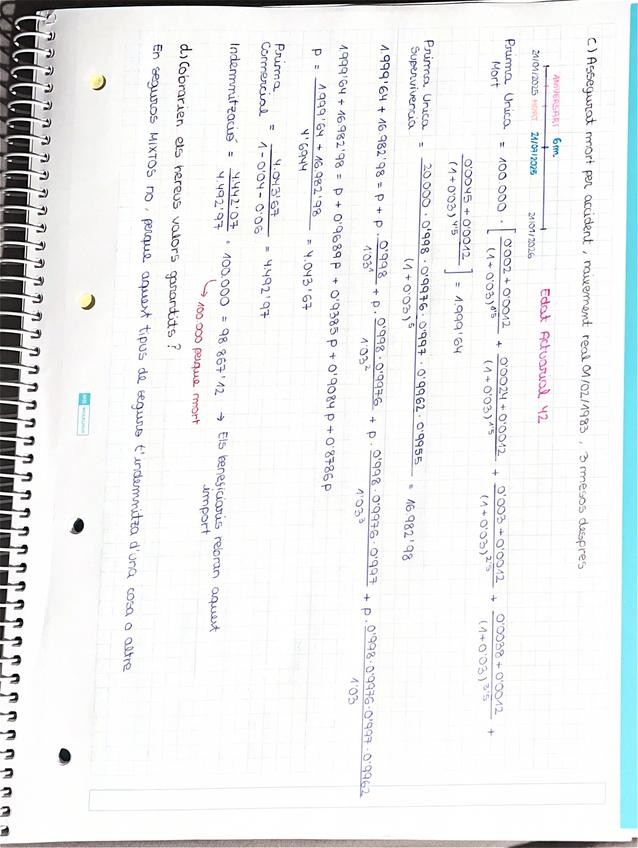 C) Assegurat mort per accident, naixement real 01/02/1983, 3 mesos despres
ANIVERSARI 6m
21/01/2025 MORT 21/07/2025 21/01/2026 Edat Actuarial 42
Prima Unica Mort = 100.000 · [ (0'002 + 0'0012)/(1+0'03)^0'5 + (0'0024 + 0'0012)/(1+0'03)^1'5 + (0'003 + 0'0012)/(1+0'03)^2'5 + (0'0038 + 0'0012)/(1+0'03)^3'5 +
(0'0045 + 0'0012)/(1+0'03)^4'5 ] = 1.999'64
Prima Unica Supervivencia = (20.000 · 0'998 · 0'9976 · 0'997 · 0'9962 · 0'9955)/(1+0'03)^5 = 16.982'98
1.999'64 + 16.982'98 = p + p · 0'998/1'03^1 + p · (0'998 · 0'9976)/1'03^2 + p · (0'998 · 0'9976 · 0'997)/1'03^3 + p · (0'998 · 0'9976 · 0'997 · 0'9962)/1'03
1.999'64 + 16.982'98 = p + 0'9689p + 0'9385p + 0'9084p + 0'8786p
p = (1.999'64 + 16.982'98)/4'6944 = 4.043'67
Prima Comercial = 4.043'67/(1 - 0'04 - 0'06) = 4.492'97
Indemnització = 4.442'07/4.492'97 · 100.000 = 98.867'12 → Els beneficiaris rebran aquest import
↳ 100.000 perque mort
d) Cobrarien els hereus valors garantits?
En seguros MIXTOS no, perque aquest tipus de seguro t'indemnitza d'una cosa o altre